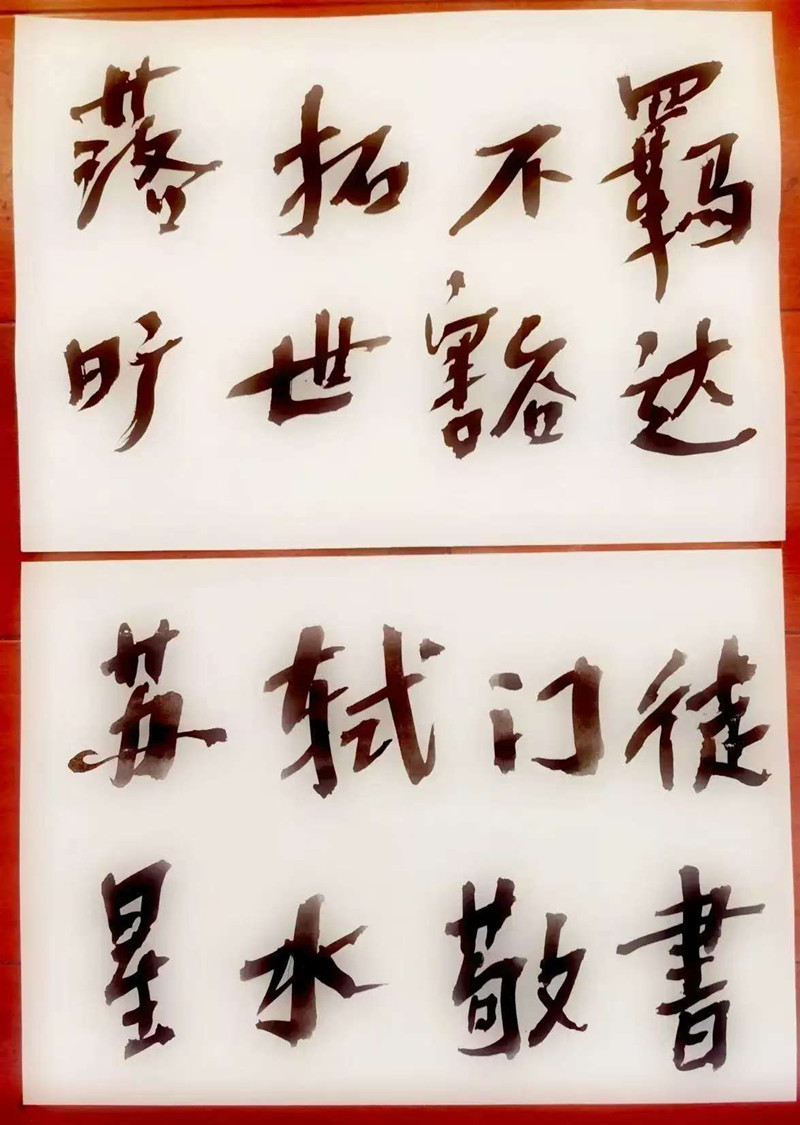 落拓不羁
旷世豁达
苏轼门徒
星水敬書